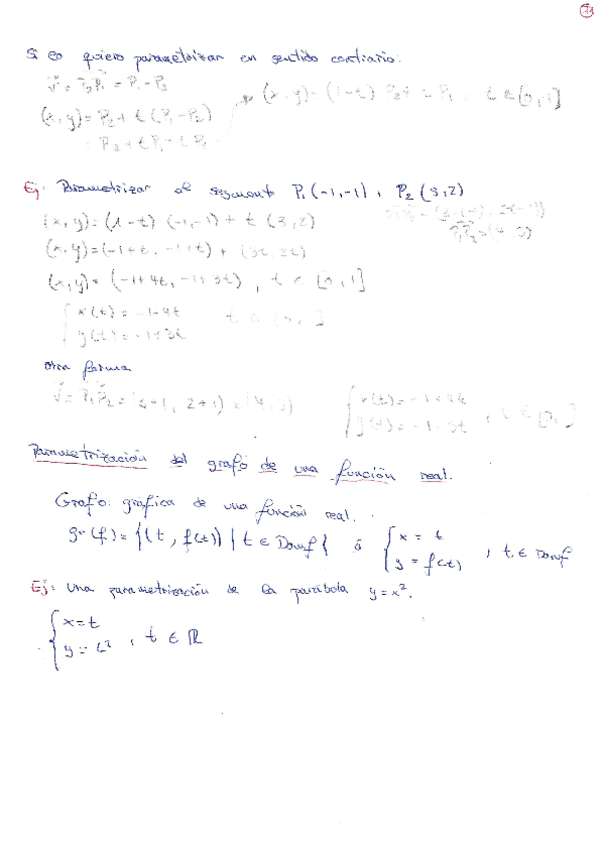 Si lo quiero parametrizar en sentido contrario:
v = P2P1 = P1 - P2
(x,y) = P2 + t(P1 - P2)
P2 + tP1 - tP2
(x,y) = (1-t) P2 + t P1, t ∈ [0,1]
Ej: Parametrizar el segmento P1(-1,-1), P2(3,2)
(x,y) = (1-t)(-1,-1) + t(3,2)
(x,y) = (-1+t, -1+t) + (3t, 2t)
(x,y) = (-1+4t, -1+3t), t ∈ [0,1]
{ x(t) = -1+4t
y(t) = -1+3t
otra forma
v = P1P2 = (3+1, 2+1) = (4,3)
{ x(t) = -1+4t
y(t) = -1+3t, t ∈ [0,1]
Parametrización del grafo de una función real.
Grafo: grafica de una función real.
gr(f) = {(t, f(t)) | t ∈ Domf} ó { x = t
y = f(t), t ∈ Domf
Ej: Una parametrización de la parábola y=x².
{ x=t
y=t², t ∈ ℝ